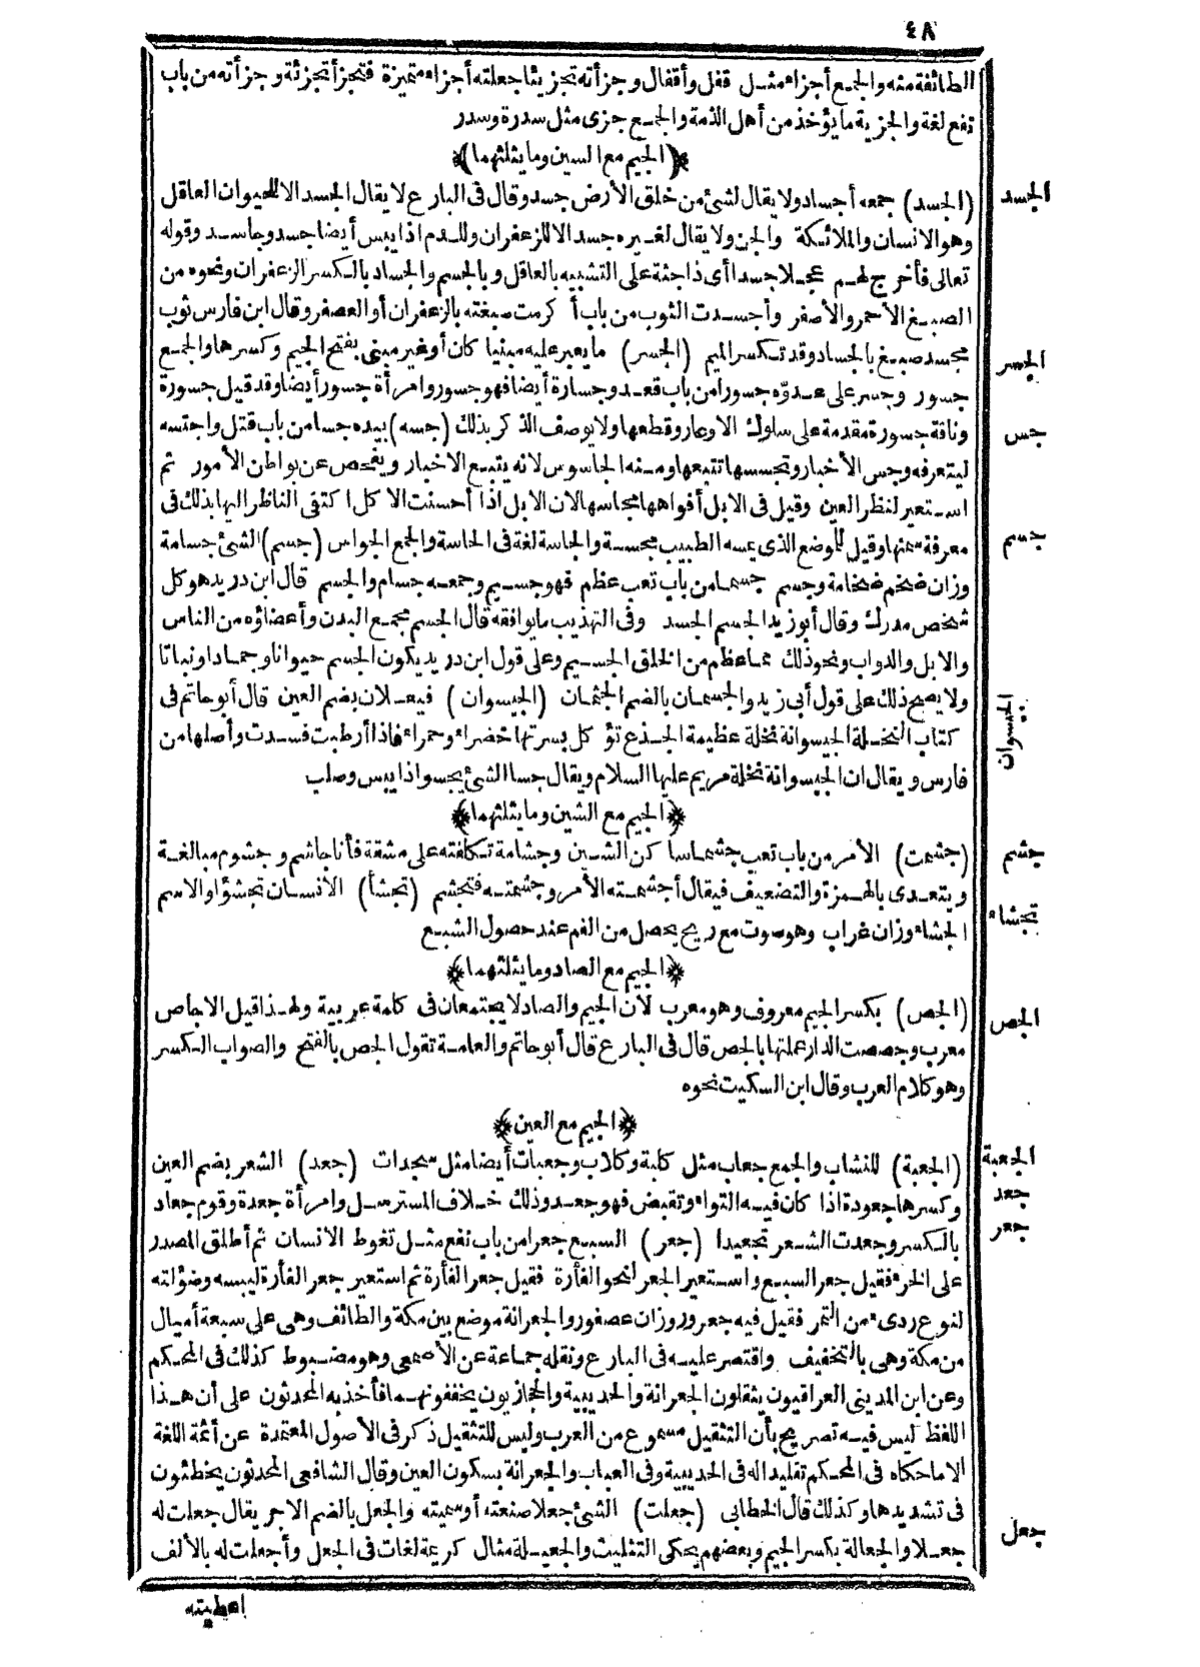 ٤٨
الطائفة منه والجمع أجزاء مثل قفل وأقفال وجزأته تجزيئا جعلته أجزاء متميزة فتجزأ تجزئة وجزأته من باب
نفع لغة والجزية ما يؤخذ من أهل الذمة والجمع جزى مثل سدرة وسدر
﴿الجيم مع السين وما يثلثهما﴾
الجسد
(الجسد) جمعه أجساد ولا يقال لشئ من خلق الأرض جسد وقال فى البارع لا يقال الجسد الا للحيوان العاقل
وهو الانسان والملائكة والجن ولا يقال لغيره جسد الا للزعفران وللدم اذا يبس أيضا جسد وجاسد وقوله
تعالى فأخرج لهم عجلا جسدا أى ذا جثة على التشبيه بالعاقل و بالجسم والجساد بالكسر الزعفران ونحوه من
الصبغ الأحمر والأصفر وأجسدت الثوب من باب أكرمت صبغته بالزعفران أو العصفر وقال ابن فارس ثوب
الجسر
مجسد صبيغ بالجساد وقد تكسر الميم (الجسر) ما يعبر عليه مبنيا كان أو غير مبنى بفتح الجيم وكسرها والجمع
جسور وجسر على عدوّه جسورا من باب قعد وجسارة أيضا فهو جسور وامرأة جسور أيضا وقد قيل جسورة
جس
وناقة جسورة مقدمة على سلوك الاوعار وقطعها ولا يوصف الذكر بذلك (جسه) بيده جسا من باب قتل واجتسه
ليتعرفه وجس الأخبار وتجسسها تتبعها ومنه الجاسوس لانه يتتبع الاخبار ويفحص عن بواطن الأمور ثم
استعير لنظر العين وقيل فى الابل أفواهها مجاسها لان الابل اذا أحسنت الاكل اكتفى الناظر اليها بذلك فى
جسم
معرفة سمنها وقيل للموضع الذى يمسه الطبيب مجسة والجاسة لغة فى الحاسة والجمع الجواس (جسم) الشئ جسامة
وزان ضخم ضخامة وجسم جسما من باب تعب عظم فهو جسيم وجمعه جسام والجسم قال ابن دريد هو كل
شخص مدرك وقال أبو زيد الجسم الجسد وفى التهذيب ما يوافقه قال الجسم مجمع البدن وأعضاؤه من الناس
والابل والدواب ونحو ذلك مما عظم من الخلق الجسيم وعلى قول ابن دريد يكون الجسم حيوانا وجمادا ونباتا
الجيسوان
ولا يصح ذلك على قول أبى زيد والجسمان بالضم الجثمان (الجيسوان) فيعلان بضم العين قال أبو حاتم فى
كتاب النخلة الجيسوانة نخلة عظيمة الجذع تؤكل بسرتها خضراء وحمراء فاذا أرطبت فسدت وأصلها من
فارس ويقال ان الجيسوانة نخلة مريم عليها السلام ويقال جسا الشئ يجسو اذا يبس وصلب
﴿الجيم مع الشين وما يثلثهما﴾
جشم
(جشمت) الأمر من باب تعب جشما ساكن الشين وجشامة تكلفته على مشقة فأنا جاشم وجشوم مبالغة
تجشاء
ويتعدى بالهمزة والتضعيف فيقال أجشمته الأمر وجشمته فتجشم (تجشأ) الانسان تجشؤا والاسم
الجشاء وزان غراب وهو صوت مع ريح يحصل من الفم عند حصول الشبع
﴿الجيم مع الصاد وما يثلثهما﴾
الجص
(الجص) بكسر الجيم معروف وهو معرب لأن الجيم والصاد لا يجتمعان فى كلمة عربية ولهذا قيل الاجاص
معرب وجصصت الدار عملتها بالجص قال فى البارع قال أبو حاتم والعامة تقول الجص بالفتح والصواب الكسر
وهو كلام العرب وقال ابن السكيت نحوه
﴿الجيم مع العين﴾
الجعبة
جعد
(الجعبة) للنشاب والجمع جعاب مثل كلبة وكلاب وجعبات أيضا مثل سجدات (جعد) الشعر بضم العين
وكسرها جعودة اذا كان فيه التواء وتقبض فهو جعد وذلك خلاف المسترسل وامرأة جعدة وقوم جعاد
جعر
بالكسر وجعدت الشعر تجعيدا (جعر) السبع جعرا من باب نفع مثل تغوط الانسان ثم أطلق المصدر
على الخرء فقيل جعر السبع واستعير الجعر لنحو الفأرة فقيل جعر الفأرة ثم استعير جعر الفأرة ليبسه وضؤلته
لنوع ردىء من التمر فقيل فيه جعرور وزان عصفور والجعرانة موضع بين مكة والطائف وهى على سبعة أميال
من مكة وهى بالتخفيف واقتصر عليه فى البارع ونقله جماعة عن الأصمعى وهو مضبوط كذلك فى المحكم
وعن ابن المدينى العراقيون يثقلون الجعرانة والحديبية والحجازيون يخففونهما فأخذ به المحدثون على أن هذا
اللفظ ليس فيه تصريح بأن التثقيل مسموع من العرب وليس للتثقيل ذكر فى الأصول المعتمدة عن أئمة اللغة
الا ما حكاه فى المحكم تقليدا له فى الحديبية وفى العباب والجعرانة بسكون العين وقال الشافعى المحدثون يخطئون
جعل
فى تشديدها وكذلك قال الخطابى (جعلت) الشئ جعلا صنعته أو سميته والجعل بالضم الاجر يقال جعلت له
جعلا والجعالة بكسر الجيم وبعضهم يحكى التثليث والجعيلة مثال كريمة لغات فى الجعل وأجعلت له بالألف
اعطيته